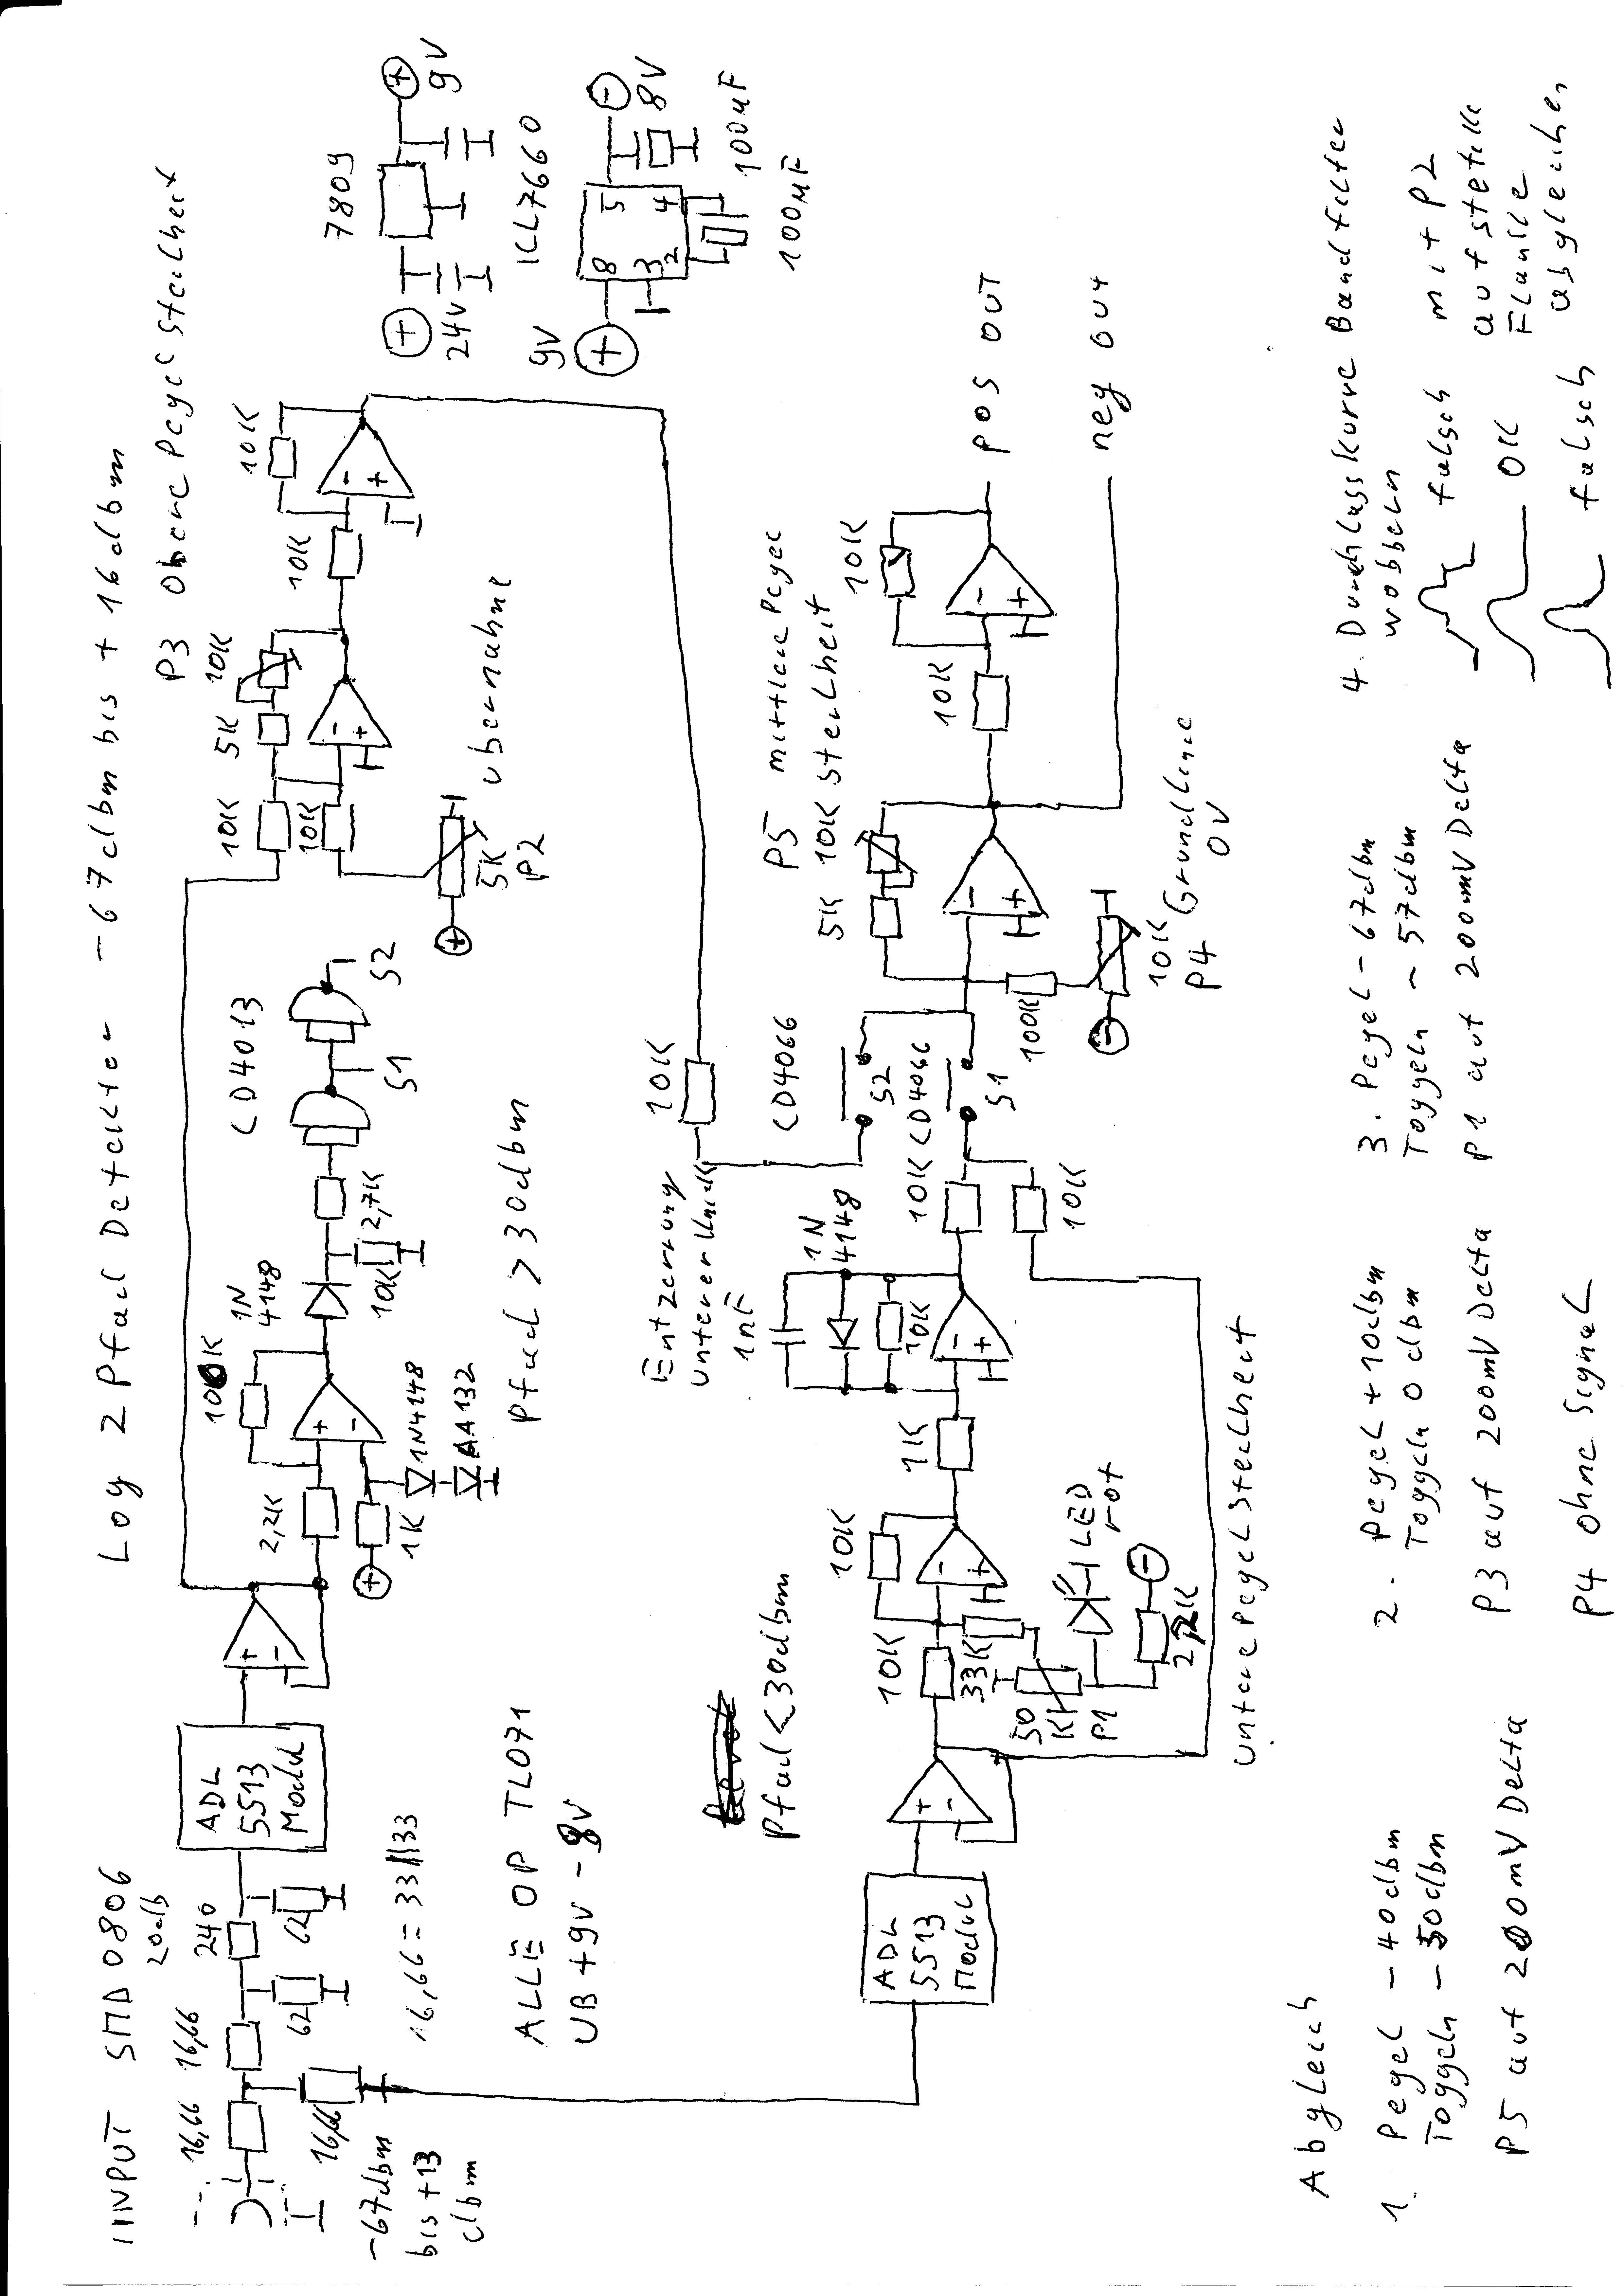 Log 2 Pfad Detektor -67dbm bis +16dbm
INPUT SMD 0806
20db
16,66
16,66
240
16,66
62
62
-67dbm
bis +13
dbm
16,66 = 33||33
ADL
5513
Modul
ALLE OP TL071
UB +9V -8V
2,2K
100K
1K
1N4148
AA132
1N
4148
10K
2,7K
CD4013
S1
S2
Pfad > 30dbm
P3 Obere Pegel Steilheit
10K
10K
5K
10K
5K
P2
Übernahme
10K
10K
7809
24V
9V
ICL7660
9V
8
3
2
5
4
8V
100µF
100µF
Pfad < 30dbm
ADL
5513
Modul
10K
10K
33K
50
K
P1
LED
rot
2,2K
1K
1nF
1N
4148
10K
Entzerrung
unterer Knick
10K
10K
10K
CD4066
S2
CD4066
S1
untere Pegel Steilheit
100K
10K
P4
Grundlinie
0V
P5 mittlere Pegel
5K 10K Steilheit
10K
10K
pos out
neg out
Abgleich
1. Pegel -40dbm
Toggeln -50dbm
P5 auf 200mV Delta
2. Pegel +10dbm
Toggeln 0dbm
P3 auf 200mV Delta
P4 ohne Signal
3. Pegel -67dbm
Toggeln -57dbm
P1 auf 200mV Delta
4. Durchlasskurve Bandfilter
wobbeln mit P2
falsch
auf steile
OK
Flanke
falsch
abgleichen